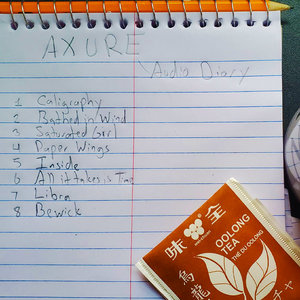 AXURE
Audio Diary
1 Caligraphy
2 Bathed in Wind
3 Saturated Grrl
4 Paper Wings
5 Inside
6 All it takes is Time
7 Libra
8 Bewick
味全
OOLONG
TEA
THE DU OOLONG
烏龍
チャ